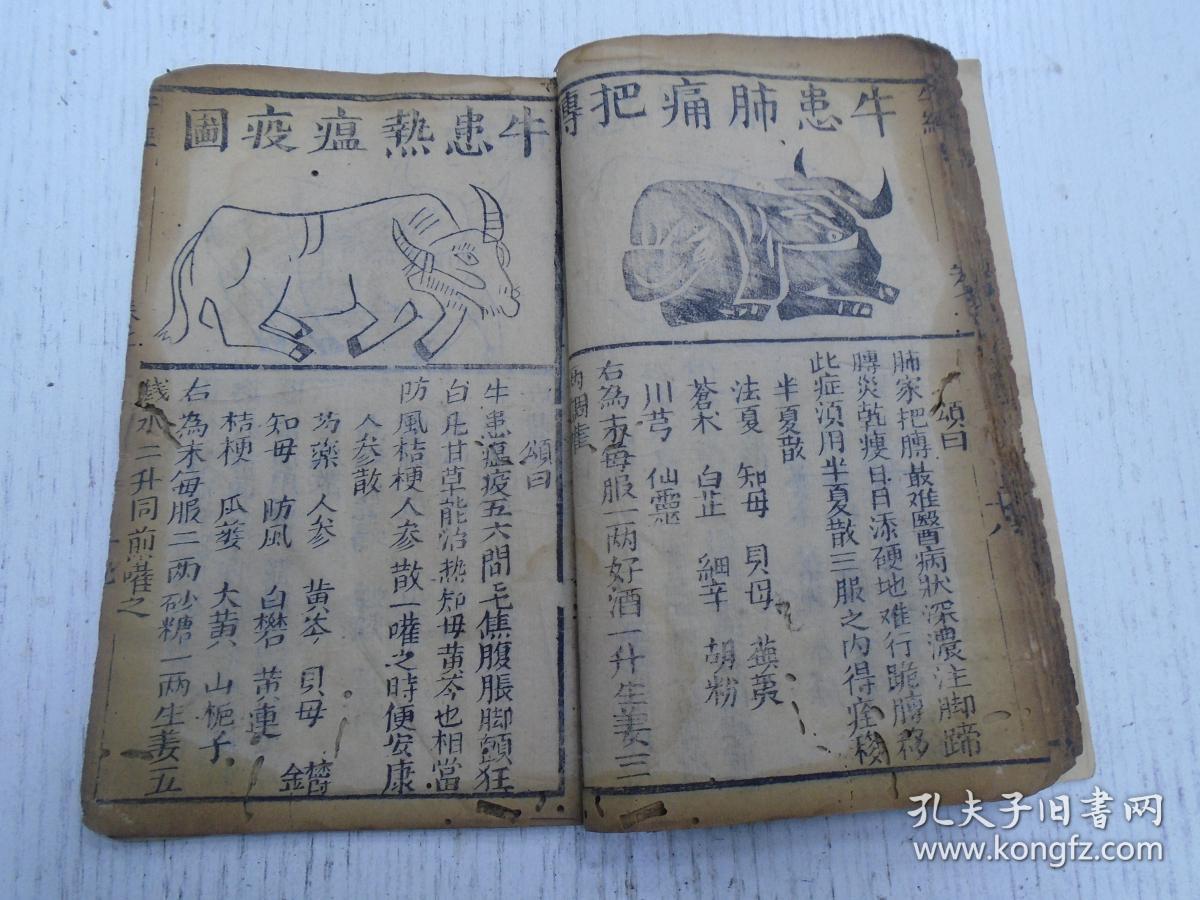 牛患肺痛把膊
頌曰
肺家把膊最难醫病狀深濃注脚蹄
膊炎乾瘦日日添硬地难行跪膊移
此症須用半夏散三服之内得痊
半夏散
法夏 知母 貝母 蕪荑
蒼术 白芷 細辛 胡粉
川芎 仙靈
右為末每服一两好酒一升生姜三
牛患熱瘟疫圖
頌曰
牛患瘟疫五六間毛焦腹脹脚顫狂
白凡甘草能治热知母黄芩也相當
防風桔梗人参散一嚾之時便安康
人参散
芍藥 人参 黄芩 貝母 欝金
知母 防風 白礬 黄連
桔梗 瓜蔞 大黄 山梔子
右為末每服二两砂糖一两生姜五
錢水二升同煎嚾之
孔夫子旧书网
www.kongfz.com